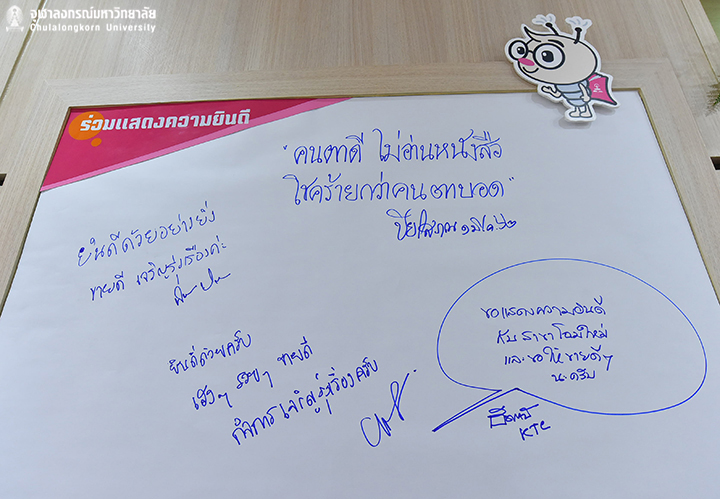 จุฬาลงกรณ์มหาวิทยาลัย
Chulalongkorn University
ร่วมแสดงความยินดี
"คนตาดี ไม่อ่านหนังสือ
โชคร้ายกว่าคนตาบอด"
ยินดีด้วยอย่างยิ่ง
ขายดี เจริญรุ่งเรืองค่ะ
ยินดีด้วยครับ
เฮงๆ รวยๆ ขายดี
กิจการเจริญรุ่งเรืองครับ
ขอแสดงความยินดี
กับสาขาโฉมใหม่
และขอให้ขายดีๆ
นะครับ
KTC